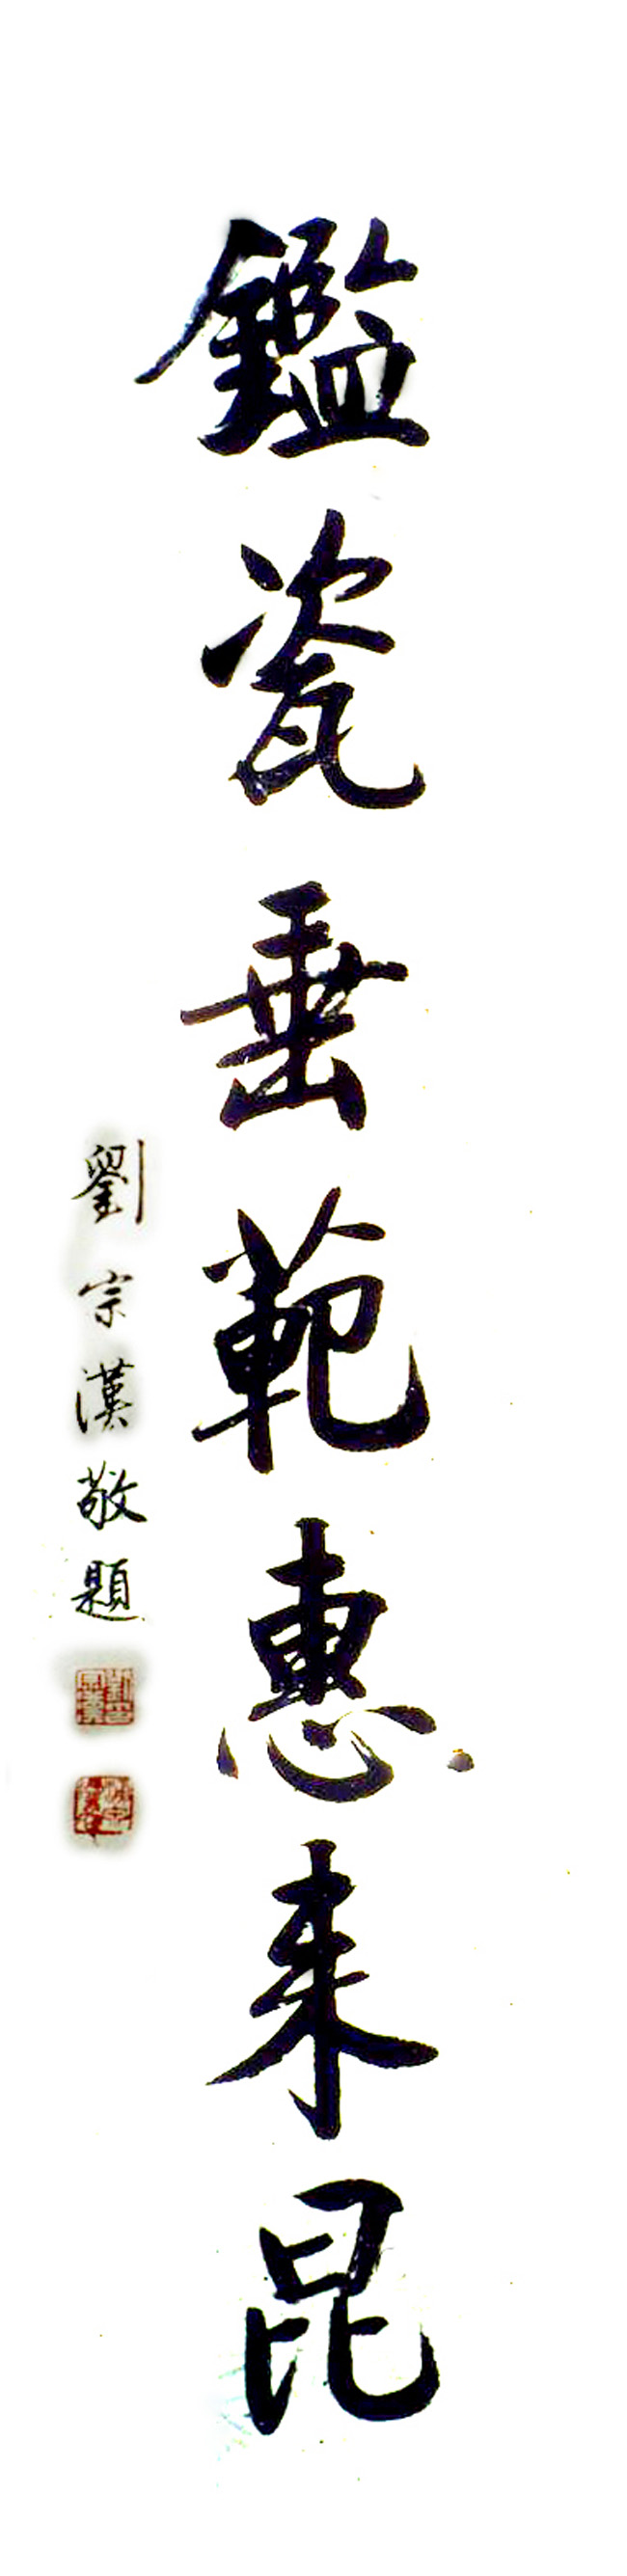 鑑瓷垂範惠来昆
劉宗漢敬題